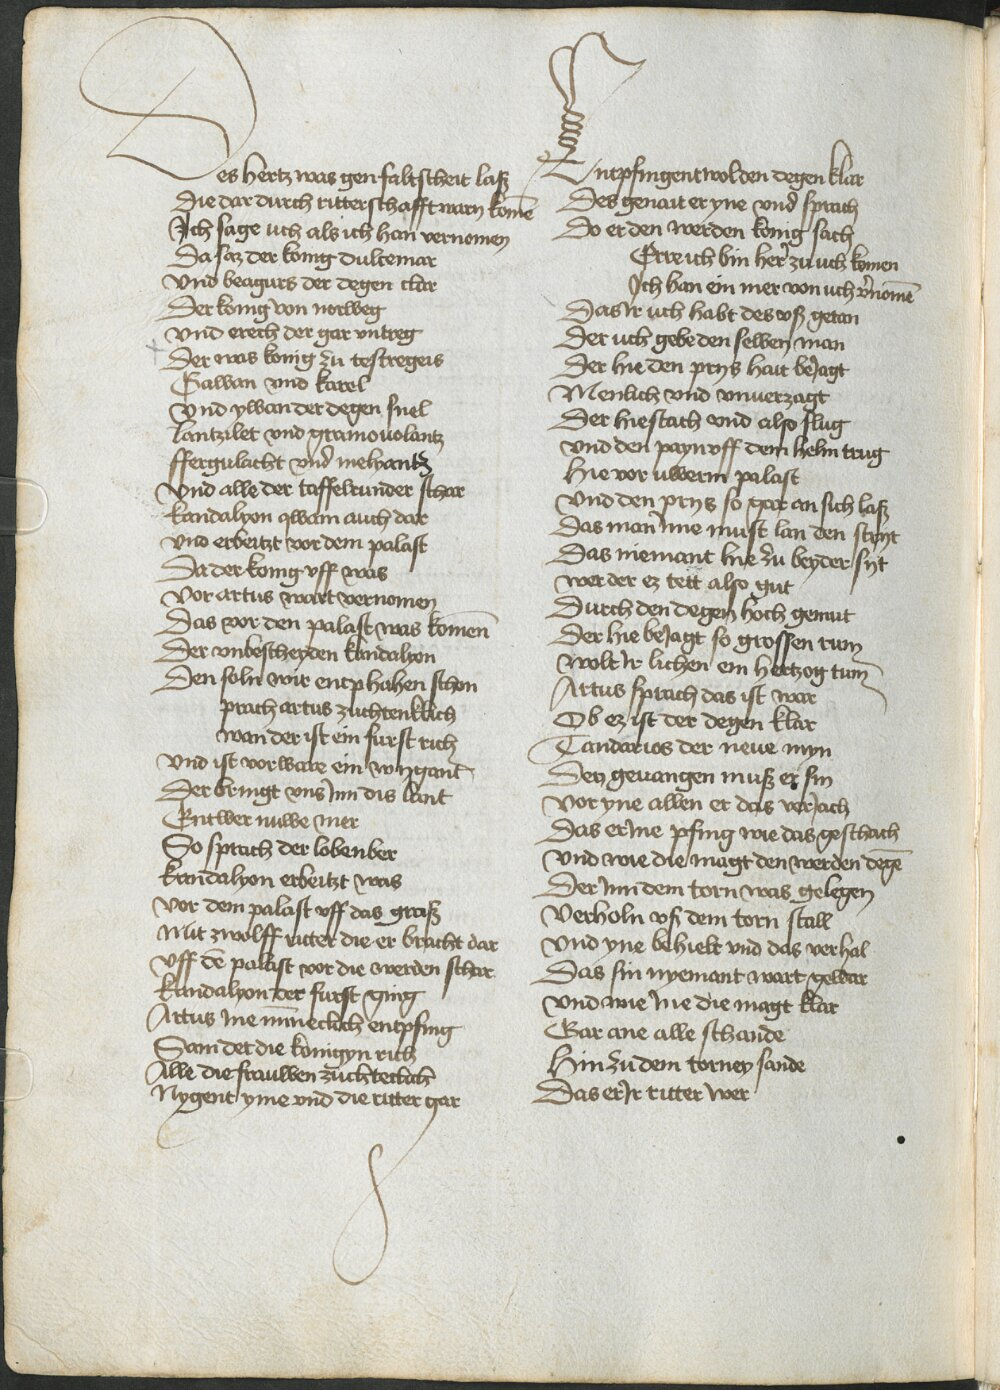 Des hertz was gen faltscheit laß
Die dar durch ritterschafft warn kome͂
Ich sage uch als ich han vernomen
Da saz der konig dulcemar
Vnd beagurs der degen clar
Der konig von norweg
Vnd erech der gar vntreg
Der was konig zu testregeis
Gawan vnd karel
Vnd ywan der degen snel
Lantzilet vnd gramouolantz
ffergulacht vnd melyantz
Vnd alle der taffelrunder schar
Kandalyon qwam auch dar
Vnd erbeitzt vor dem palast
Da der konig vff was
Vor artus wart vernomen
Das vor den palast was komen
Der vnbescheyden kandalyon
Den soln wir entphahen schon
prach artus zuchtenklich
wan der ist ein furst rich
Vnd ist vorware ein wygant
Der bringt vns Inn dis lant
Entwer nuwe mer
So sprach der lobenber
Kandalyon erbeitzt was
Vor dem palast vff das graß
Mit zwolff ritter die er bracht dar
Vff de͂ pallast vor die werden schar
Kandalyon der furst ging
Artus Ine mineclich entpfing
Sam det die konigyn rich
Alle die frauwen zuchteclich
Nygent yme vnd die ritter gar
Entpfingent wol den degen klar
Des genait er yne vnd sprach
Do er den werden konig sach
Erre ich bin her zu uch komen
Ich han ein mer von uch v͛nome͂
Das Ir uch habt des vß getan
Der uch gebe den selben man
Der hie den prys hait beIagt
Menlich vnd vnuerzagt
Der hie stach vnd also slug
Vnd den payn vff dem helm trug
Hie vor uwerm palast
Vnd den prys so gar an sich laß
Das man Ime must lan den strijt
Das niemant hie zu beyder sijt
wer der ez tett also gut
Durch den degen hoch gemut
Der hie beIagt so grossen rum
wolt Ir lichen ein hertzog tum
Artus sprach das ist war
Ob ez ist der degen klar
Tandarios der neue myn
Den geuangen muß er sin
Vor yne allen er das verIach
Das er Ine pfing wie das geschach
Vnd wie die magt den werden dege͂
Der Inn dem torn was gelegen
Verholn vß dem torn stall
Vnd yne behielt vnd das verhal
Das sin nyemant wart gewar
Vnd wie Ine die magt klar
Gar ane alle schande
Hin zu dem torney sande
Das er Ir ritter wer